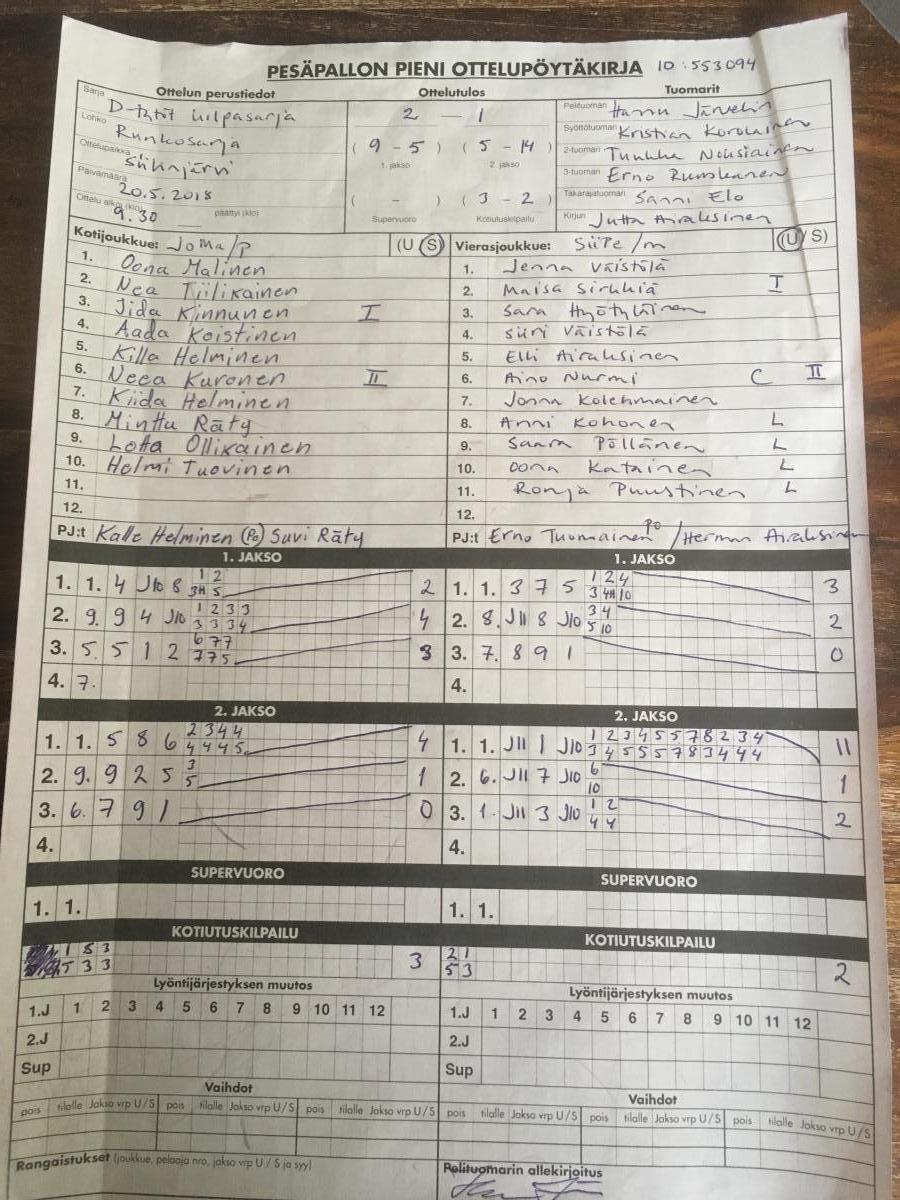 PESÄPALLON PIENI OTTELUPÖYTÄKIRJA ID: 553094
Ottelun perustiedot Ottelutulos Tuomarit
Sarja D-tytöt kilpasarja 2 - 1 Pelituomari Hannu Järvelin
Lohko Runkosarja (9 - 5) (5 - 14) Syöttötuomari Kristian Korolainen
1. jakso 2. jakso
Ottelupaikka Siilinjärvi 2-tuomari Tuukka Nousiainen
Päivämäärä 20.5.2018 3-tuomari Erno Rumskanen
Ottelu alkoi (klo) 9.30 päättyi (klo) — ( - ) (3 - 2) Takarajatuomari Sanni Elo
Supervuoro Kotiutuskilpailu Kirjuri Jutta Airaksinen
Kotijoukkue: JoMa/p (U S) Vierasjoukkue: SiiPe/m (U/S)
1. Oona Malinen 1. Jenna Väistölä
2. Nea Tiilikainen 2. Maisa Sirkkiä I
3. Jida Kinnunen I 3. Sara Hyötyläinen
4. Aada Koistinen 4. Siiri Väistölä
5. Killa Helminen 5. Elli Airaksinen
6. Neea Kuronen II 6. Aino Nurmi C II
7. Kiida Helminen 7. Jonna Kolehmainen
8. Minttu Räty 8. Anni Kohonen L
9. Lotta Ollikainen 9. Saara Pöllänen L
10. Helmi Tuovinen 10. Oona Katainen L
11. 11. Ronja Puustinen L
12. 12.
PJ:t Kalle Helminen (Po) Suvi Räty PJ:t Erno Tuomainen Po / Herman Airaksinen
1. JAKSO 1. JAKSO
1. 1. 4 J10 8 1 2 2 1. 1. 3 7 5 1 2 4 3
3H 5 3 4H 10
2. 9. 9 4 J10 1 2 3 3 4 2. 8. J11 8 J10 3 4 2
3 3 3 4 5 10
3. 5. 5 1 2 6 7 7 3 3. 7. 8 9 1 0
7 7 5
4. 7. 4.
2. JAKSO 2. JAKSO
1. 1. 5 8 6 2 3 4 4 4 1. 1. J11 1 J10 1 2 3 4 5 5 7 8 2 3 4 11
4 4 4 5 3 4 5 5 5 7 8 3 4 4 4
2. 9. 9 2 5 3 1 2. 6. J11 7 J10 6 1
5 10
3. 6. 7 9 1 0 3. 1. J11 3 J10 1 2 2
4 4
4. 4.
SUPERVUORO SUPERVUORO
1. 1. 1. 1.
KOTIUTUSKILPAILU KOTIUTUSKILPAILU
1 5 3 3 2 1 2
5 3 3 5 3
Lyöntijärjestyksen muutos Lyöntijärjestyksen muutos
1.J 1 2 3 4 5 6 7 8 9 10 11 12 1.J 1 2 3 4 5 6 7 8 9 10 11 12
2.J 2.J
Sup Sup
Vaihdot Vaihdot
pois tilalle Jakso vrp U/S pois tilalle Jakso vrp U/S pois tilalle Jakso vrp U/S pois tilalle Jakso vrp U/S pois tilalle Jakso vrp U/S pois tilalle Jakso vrp U/S
Rangaistukset (joukkue, pelaaja nro, jakso vrp U / S ja syy) Pelituomarin allekirjoitus